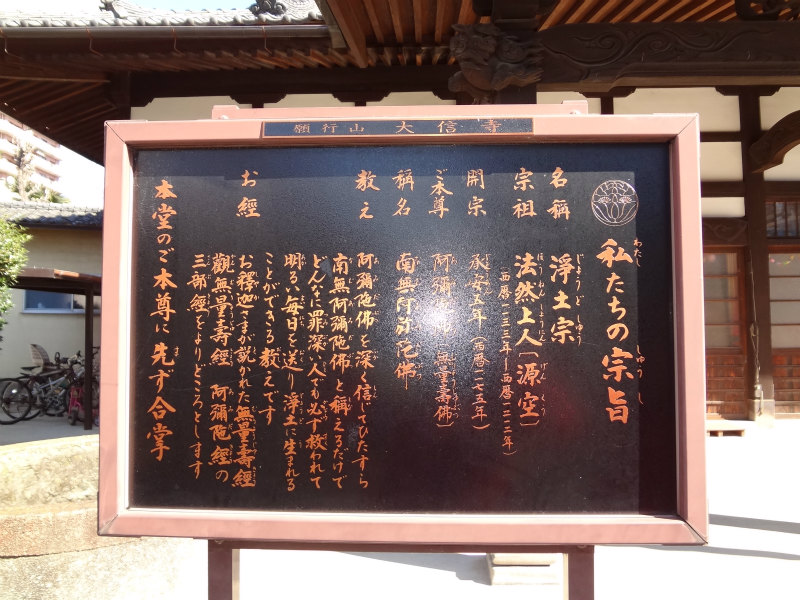 願行山 大信寺
私たちの宗旨
名稱 浄土宗
宗祖 法然上人〔源空〕
(西暦一一三三年—西暦一二一二年)
開宗 承安五年(西暦一一七五年)
ご本尊 阿彌陀佛(無量壽佛)
稱名 南無阿弥陀佛
教え 阿彌陀佛を深く信じてひたすら
南無阿彌陀佛と稱えるだけで
どんなに罪深い人でも必ず救われて
明るい毎日を送り浄土に生まれる
ことができる教えです
お經 お釋迦さまが説かれた無量壽經
觀無量壽經 阿彌陀經の
三部經をよりどころとします
本堂のご本尊に先ず合掌